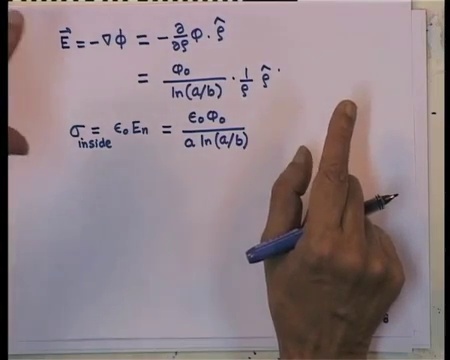 E⃗ = -∇Φ = - ∂/∂ρ Φ · ρ̂
= Φ₀/ln(a/b) · 1/ρ ρ̂
σ inside = ε₀Eₙ = ε₀Φ₀/a ln(a/b)
8